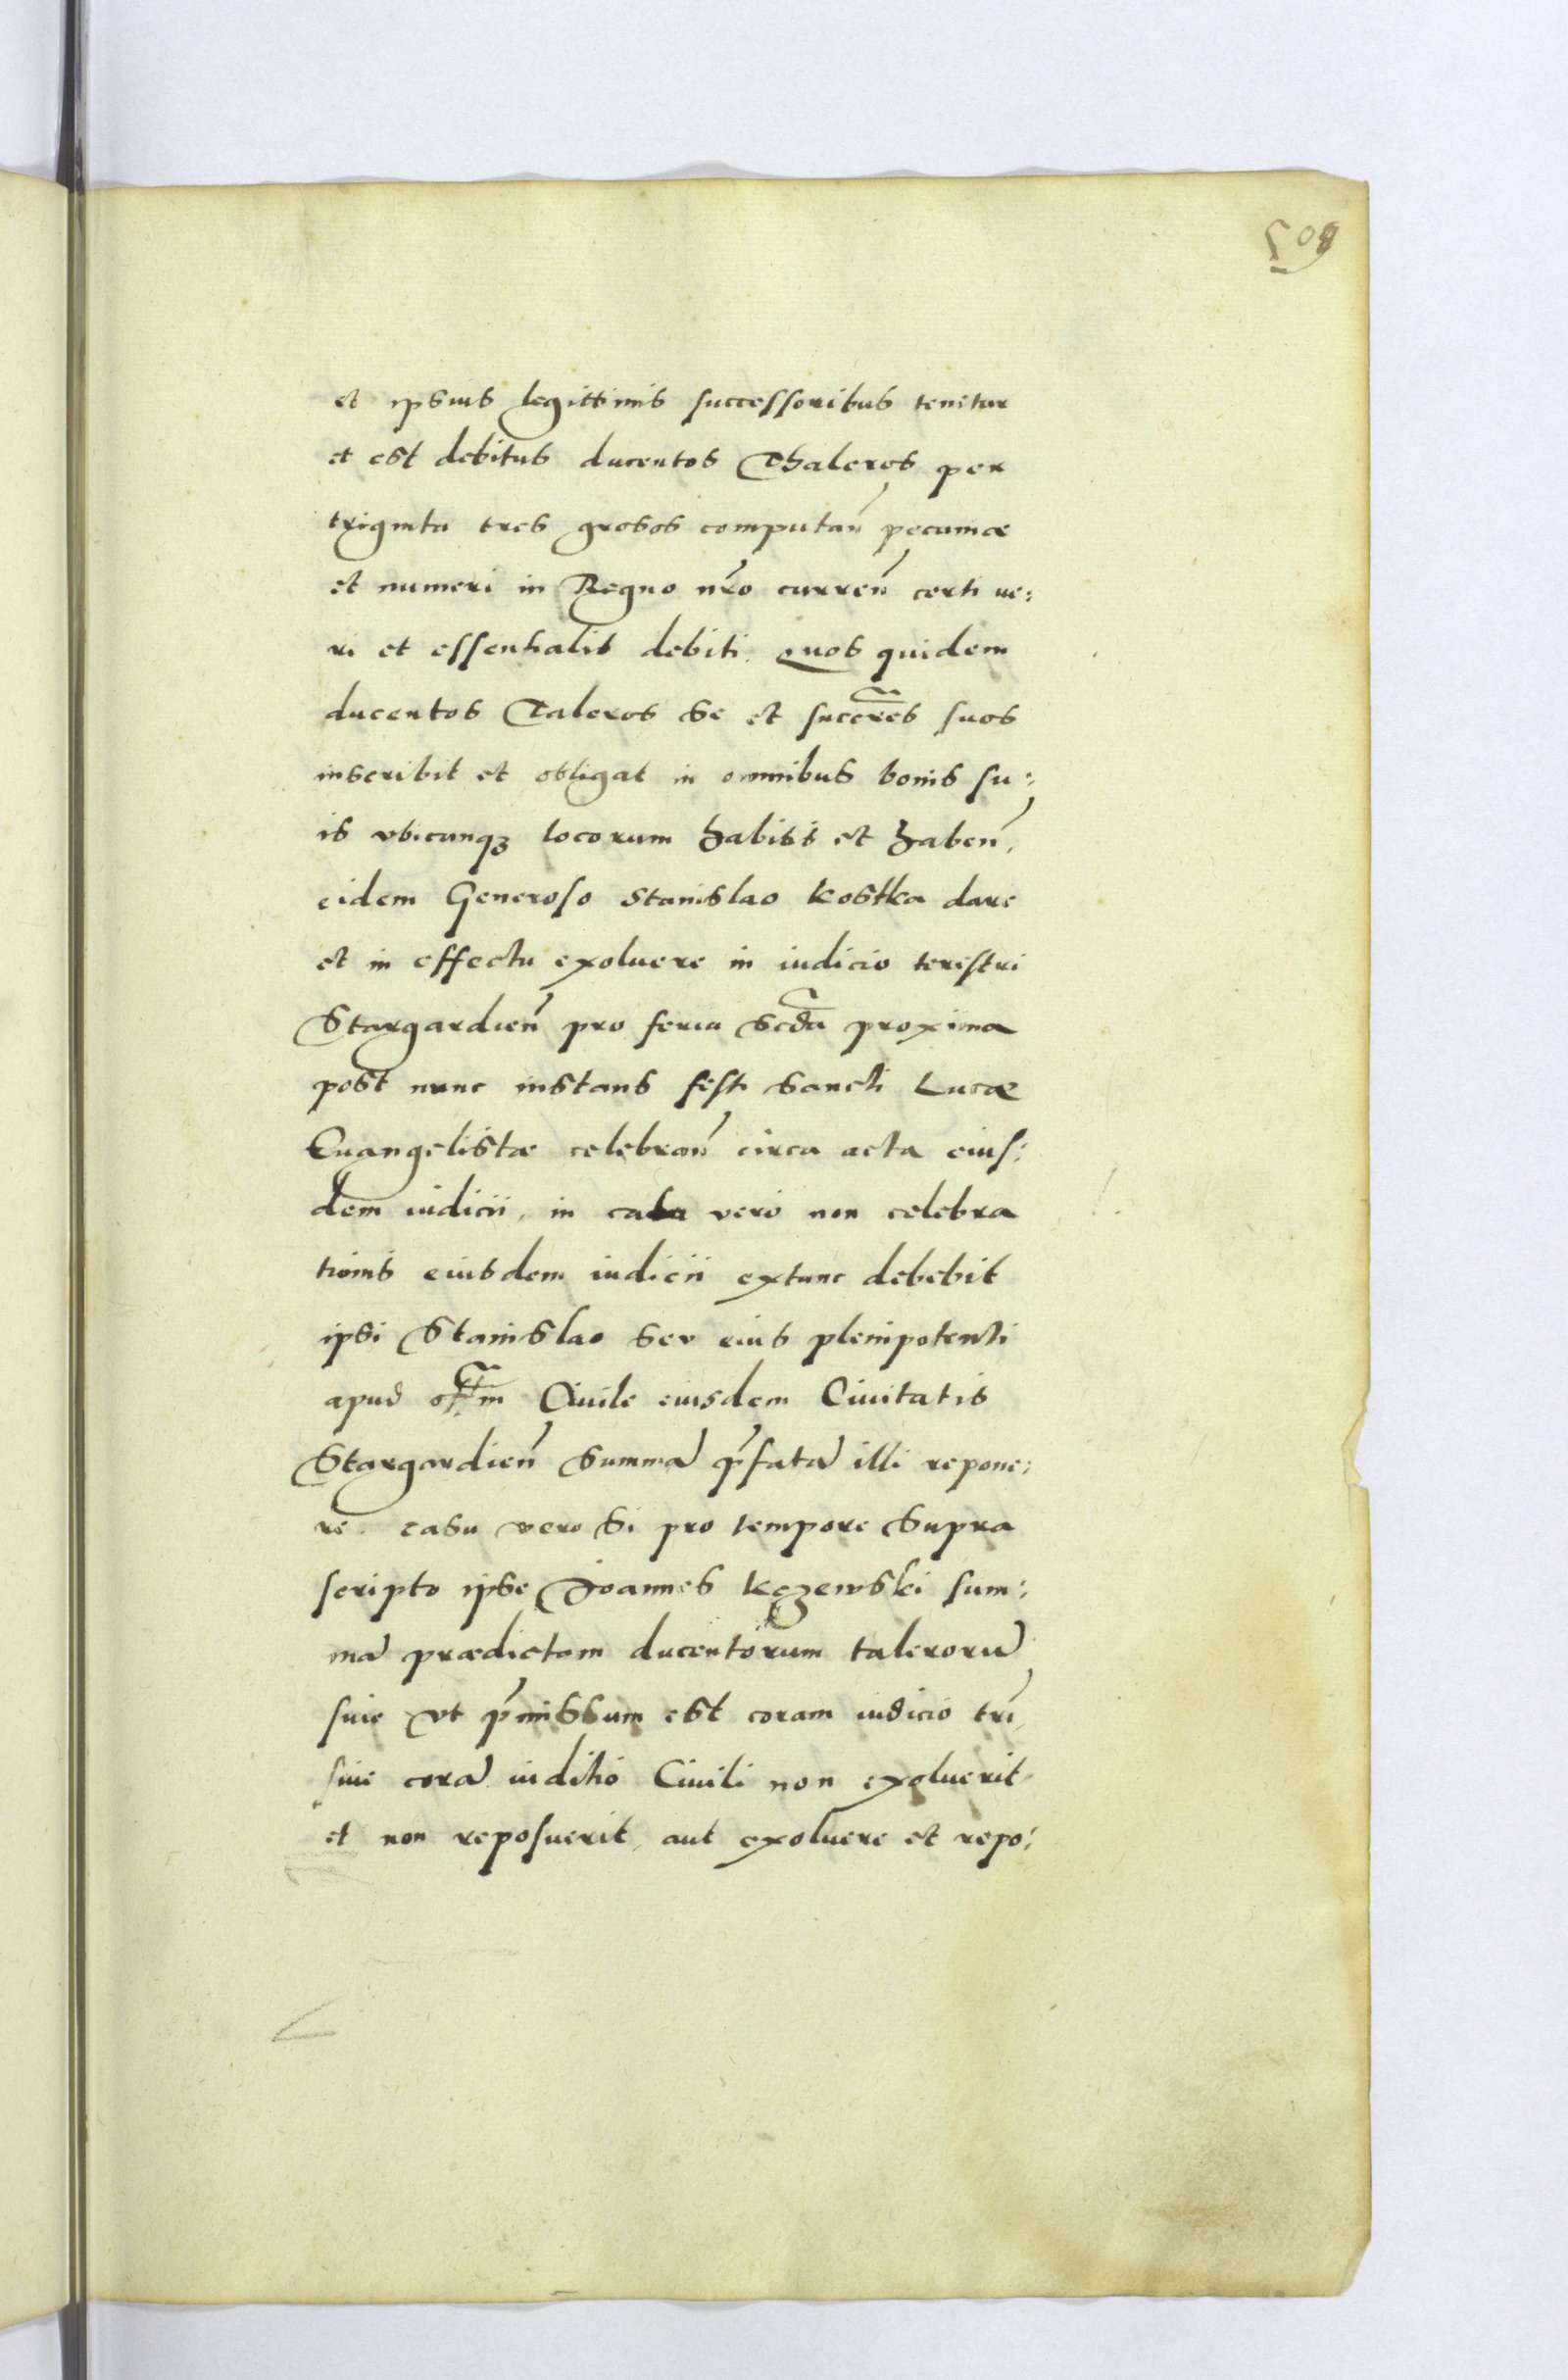 509
et ipsius legittimis successoribus tenetur
et est debitus ducentos Thaleros per
triginta tres grosos computan̄ pecuniæ
et numeri in Regno nr̄o curren̄ certi ue:
ri et essentialis debiti. Quos quidem
ducentos Taleros se et succr̄es suos
inscribit et obligat in omnibus bonis su:
is vbicunqꝫ locorum habitis et haben̄,
eidem Generoso Stanislao Kostka dare
et in effectu exoluere in iudicio terestri
Stargardien̄ pro feria scd̄a proxima
post nunc instans festi sancti Lucæ
Euangelistæ celebran̄ circa acta eius:
dem iudicii, in casu vero non celebra
tionis eiusdem iudicii extunc debebit
ipsi Stanislao seu eius plenipotenti
apud off̄m Ciuile eiusdem Ciuitatis
Stargardien̄ summā p̄fatā illi repone:
re. casu vero si pro tempore supra
scripto ipse Joannes Kęzewski sum:
mā prædictam ducentorum talerorū
siue vt p̄missum est coram iudicio trī,
siue corā iuditio Ciuili non exoluerit
et non reposuerit, aut exoluere et repo: